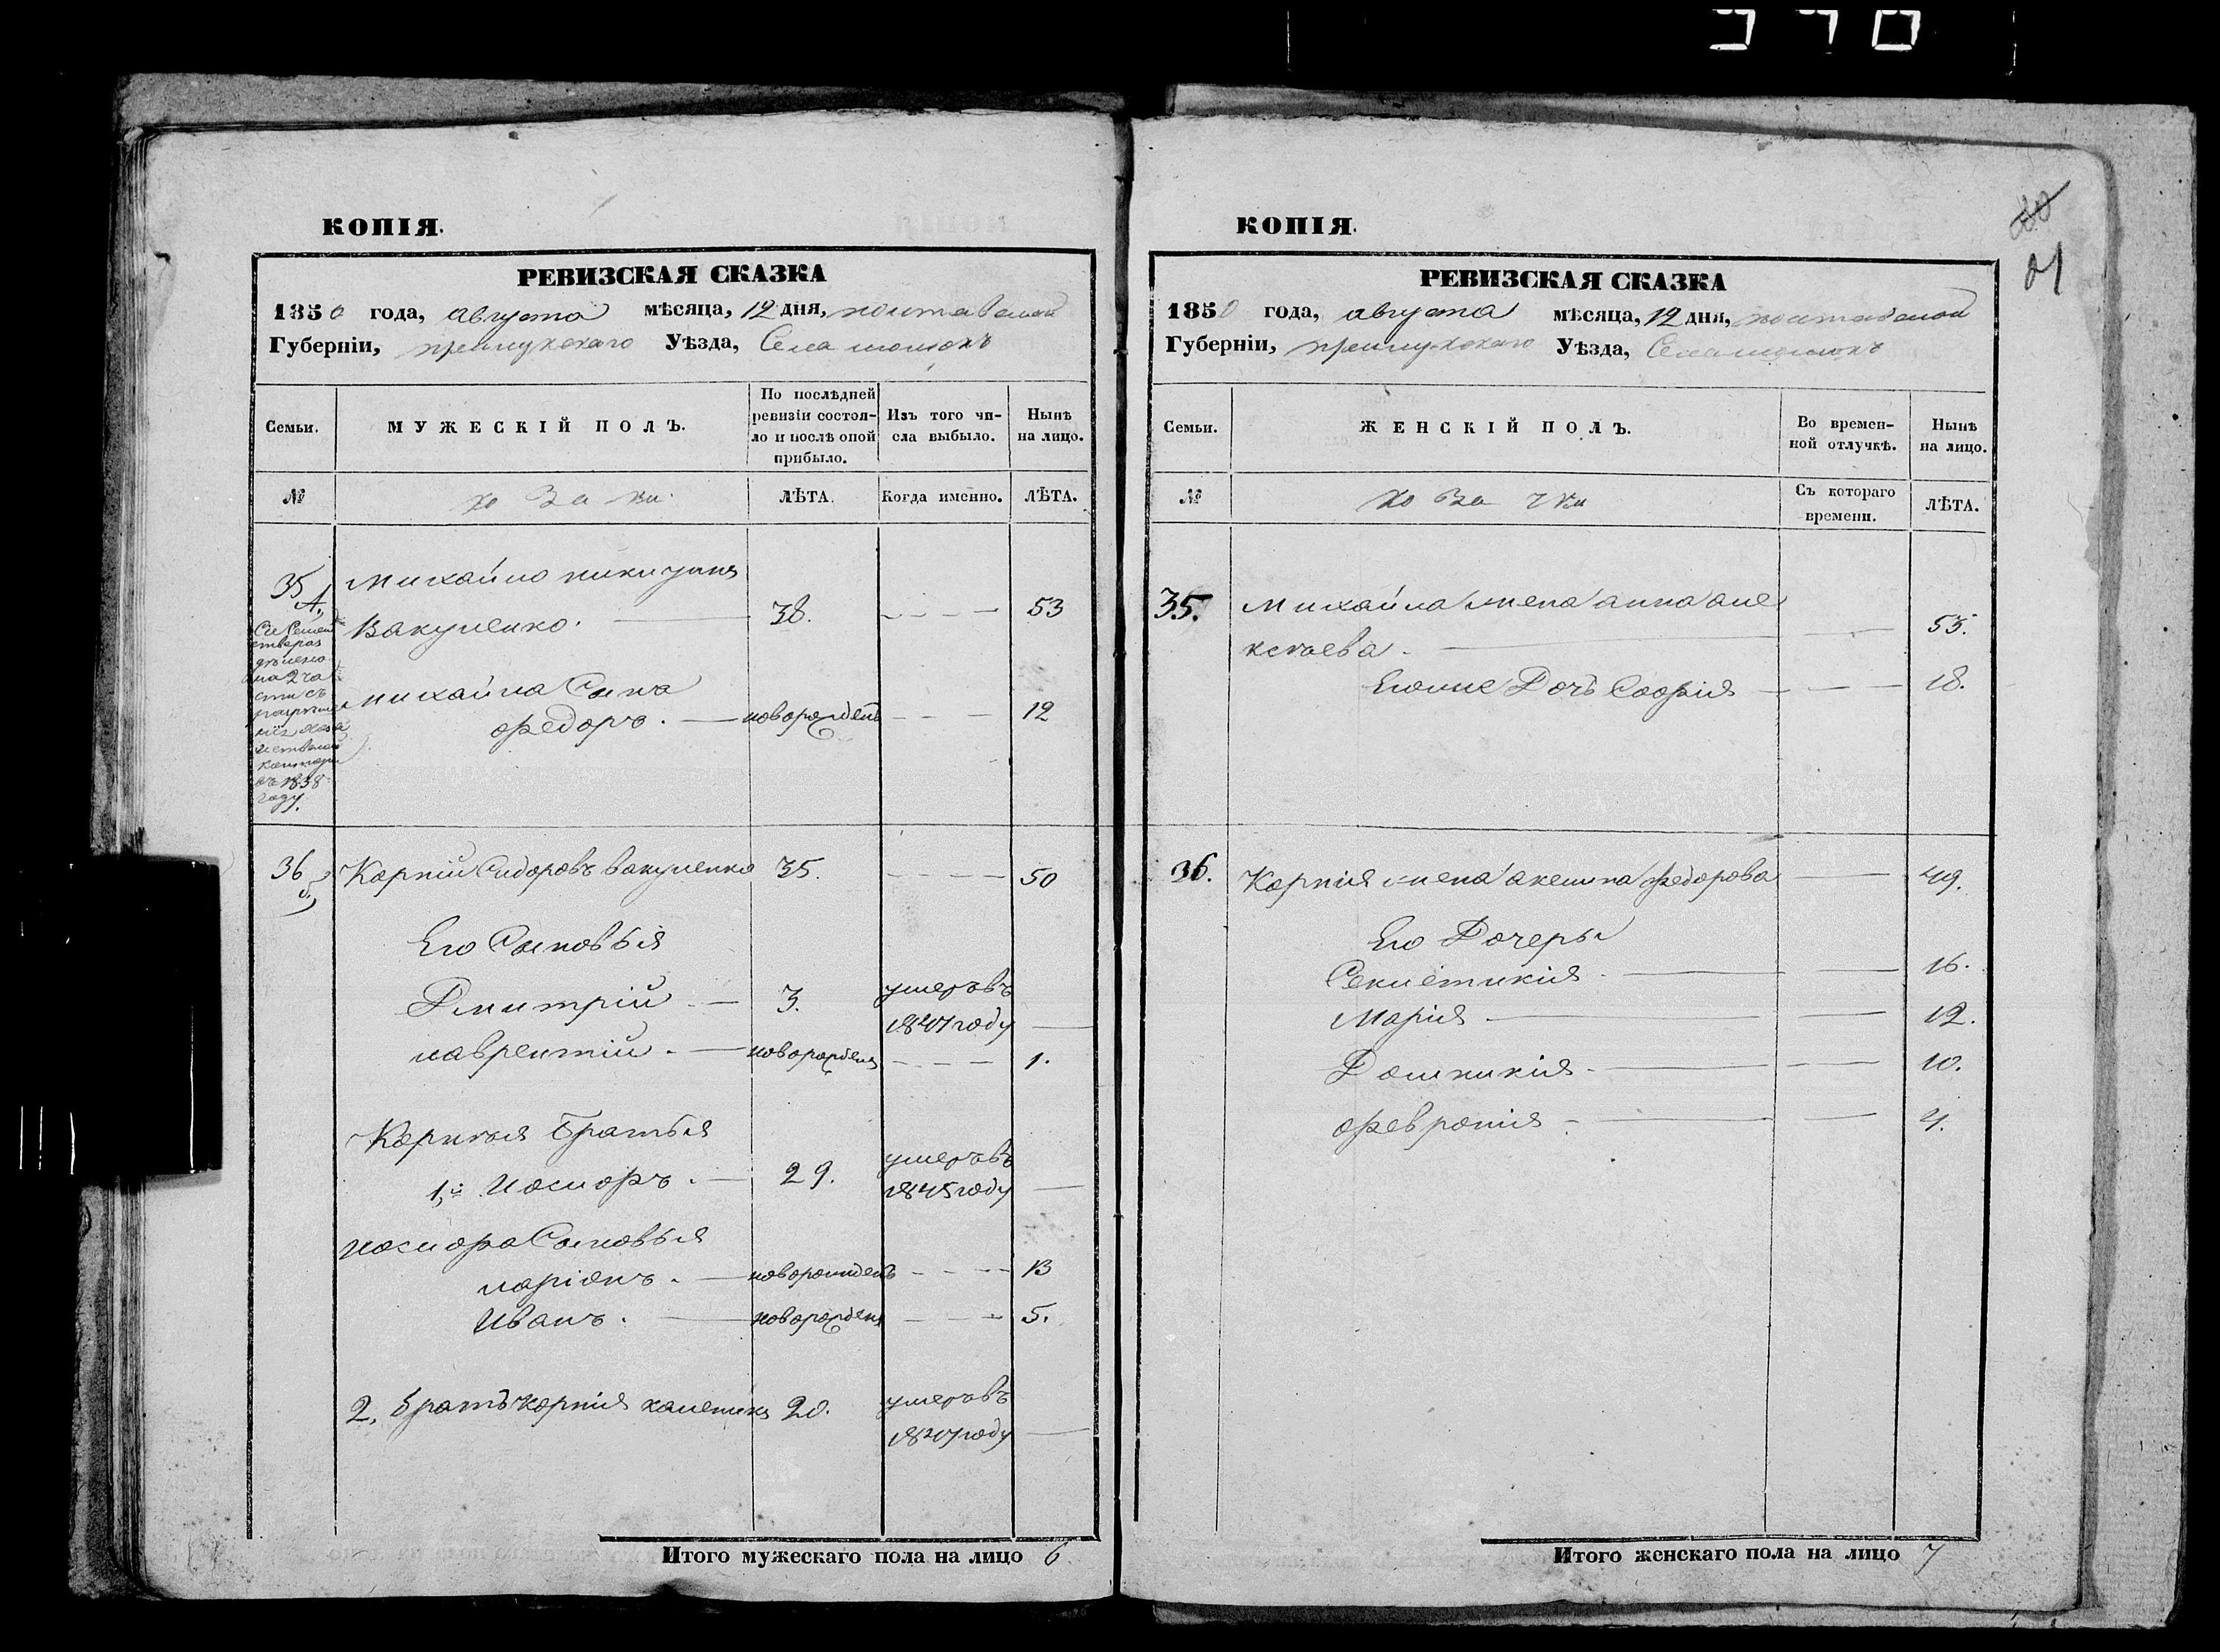 КОПІЯ.
РЕВИЗСКАЯ СКАЗКА
1850 года, августа мѣсяца, 12 дня, полтавской
Губерніи, прилукского Уѣзда, Села
Семьи.
МУЖЕСКІЙ ПОЛЪ.
По послѣдней ревизіи состоя-
ло и послѣ оной прибыло.
Изъ того чи-
сла выбыло.
Нынѣ на лицо.
№
козаки.
ЛѢТА.
Когда именно.
ЛѢТА.
35 А.
михайло никитинъ
Вакуленко. 38. 53
Сіе Семей
ство раз
дѣлено
на 2 ча
сти съ
въ 1858
году.
михайла Сынъ
федоръ. новорожденъ 12
36 б)
Корній Сидоровъ вакуленко 35. 50
Его Сыновья
Дмитрій 3. умеръ въ
1847 году
лаврентій. новорожденъ 1.
Корнія братья
1,й Иосифъ. 29. умеръ въ
1845 году
иосифа Сыновья
ларіонъ. новорожденъ 13
Иванъ. новорожденъ 5.
2, братъ корнія 20. умеръ въ
1847 году
Итого мужескаго пола на лицо 6
КОПІЯ.
21
РЕВИЗСКАЯ СКАЗКА
1850 года, августа мѣсяца, 12 дня, полтавской
Губерніи, прилукского Уѣзда, Села
Семьи.
ЖЕНСКІЙ ПОЛЪ.
Во времен-
ной отлучкѣ.
Нынѣ
на лицо.
№
козачки
Съ котораго
времени.
ЛѢТА.
35.
михайла жена анна але
ксѣева. 53.
Егоже Дочь Софія 18.
36.
Корнія жена акелина федорова 49.
Его Дочеры
Секлетикія 16.
Марія 12.
Домникія 10.
февронія 4.
Итого женскаго пола на лицо 7